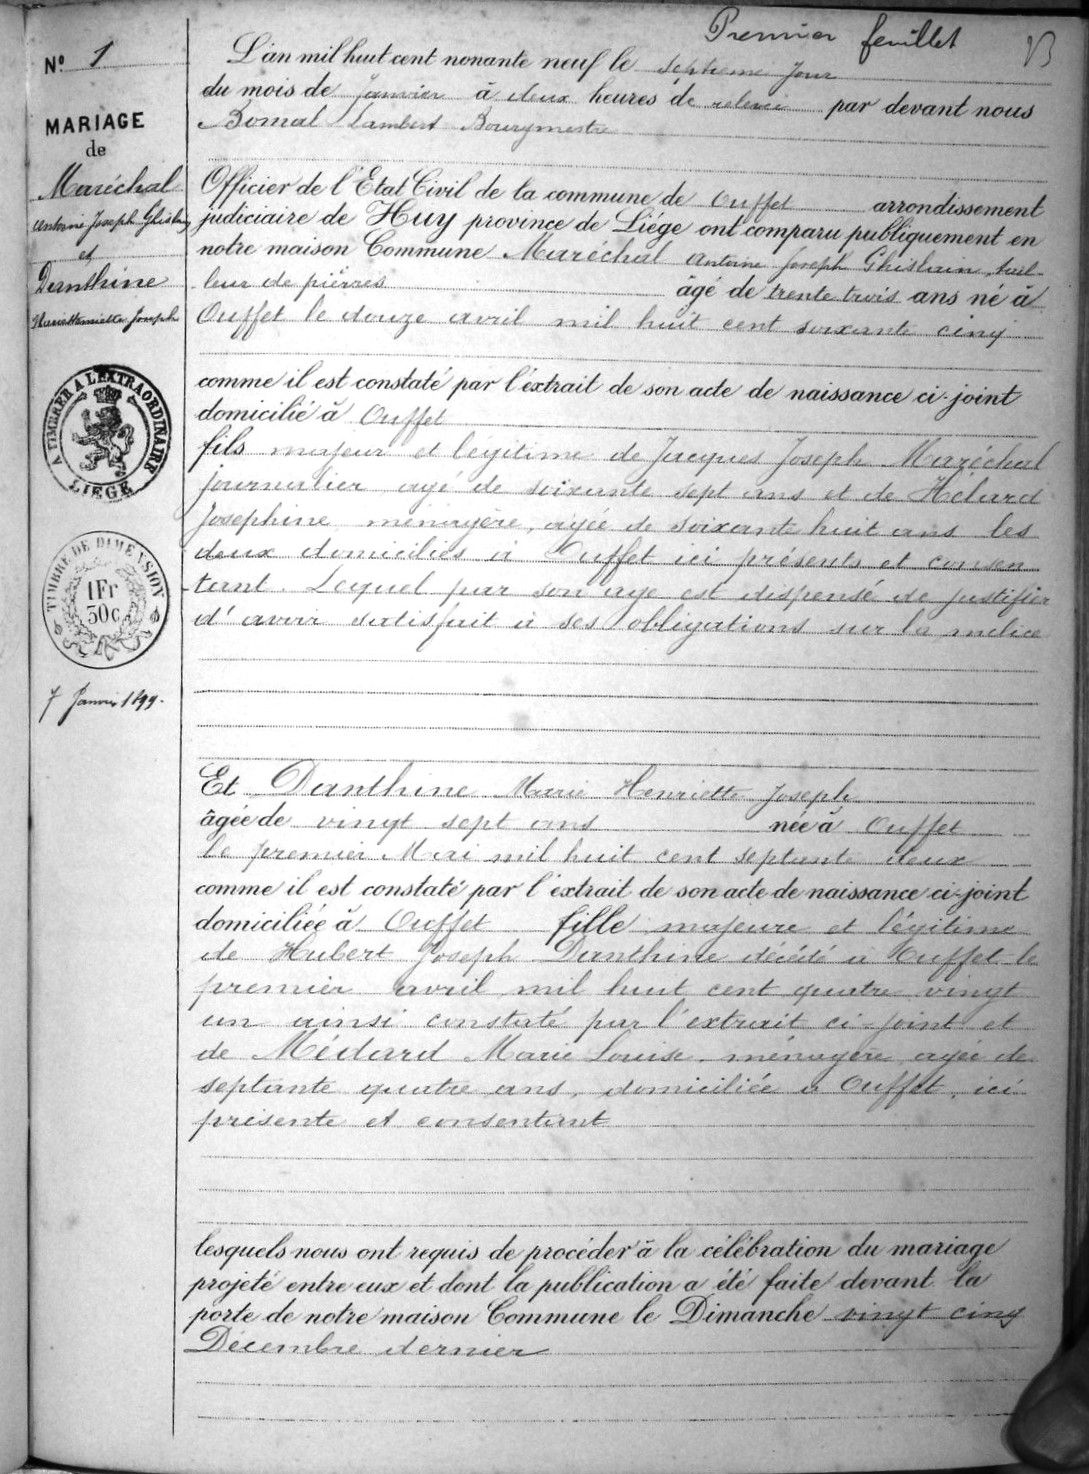 Premier feuillet
Nº 1
MARIAGE
de
Maréchal
Antoine Joseph Ghislain
et
Danthine
Marie Henriette Joseph
A TIMBRER A L'EXTRAORDINAIRE
LIEGE
TIMBRE DE DIMENSION
1Fr
30c
7 Janvier 1899.
L'an mil huit cent nonante neuf le septieme jour
du mois de Janvier à deux heures de relevée par devant nous
Bomal Lambert Bourgmestre
Officier de l'Etat Civil de la commune de Ouffet arrondissement
judiciaire de Huy province de Liége ont comparu publiquement en
notre maison Commune Maréchal Antoine Joseph Ghislain, tail-
leur de pierres âgé de trente trois ans né à
Ouffet le douze avril mil huit cent soixante cinq
comme il est constaté par l'éxtrait de son acte de naissance ci-joint
domicilié à Ouffet
fils majeur et légitime de Jacques Joseph Maréchal
journalier agé de soixante sept ans et de Hélard
Josephine, ménagère, agée de soixante huit ans les
deux domiciliés à Ouffet ici présents et consen
tant. Lequel par son age est dispensé de justifier
d'avoir satisfait à ses obligations sur la milice
Et Danthine Marie Henriette Joseph
âgée de vingt sept ans née à Ouffet
le premier Mai mil huit cent septante deux
comme il est constaté par l'éxtrait de son acte de naissance ci-joint
domiciliée à Ouffet fille majeure et légitime
de Hubert Joseph Danthine décédé à Ouffet le
premier avril mil huit cent quatre vingt
un ainsi constaté par l'extrait ci-joint et
de Médard Marie Louise, ménagère, agée de
septante quatre ans, domiciliée à Ouffet, ici
présente et consentant
lesquels nous ont requis de procéder à la célébration du mariage
projeté entre eux et dont la publication a été faite devant la
porte de notre maison Commune le Dimanche vingt cinq
Décembre dernier